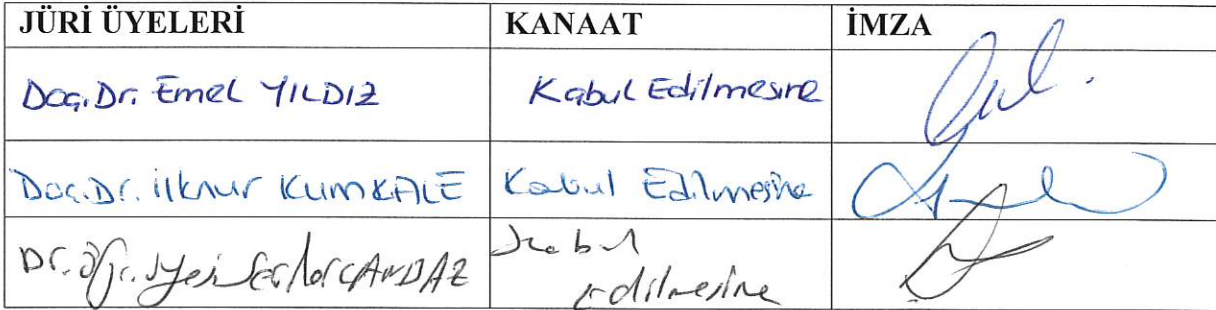 JÜRİ ÜYELERİ KANAAT İMZA
Doç.Dr. Emel YILDIZ Kabul Edilmesine
Doç.Dr. İlknur KUMKALE Kabul Edilmesine
Dr. Öğr. Üyesi CANDAZ Kabul
edilmesine